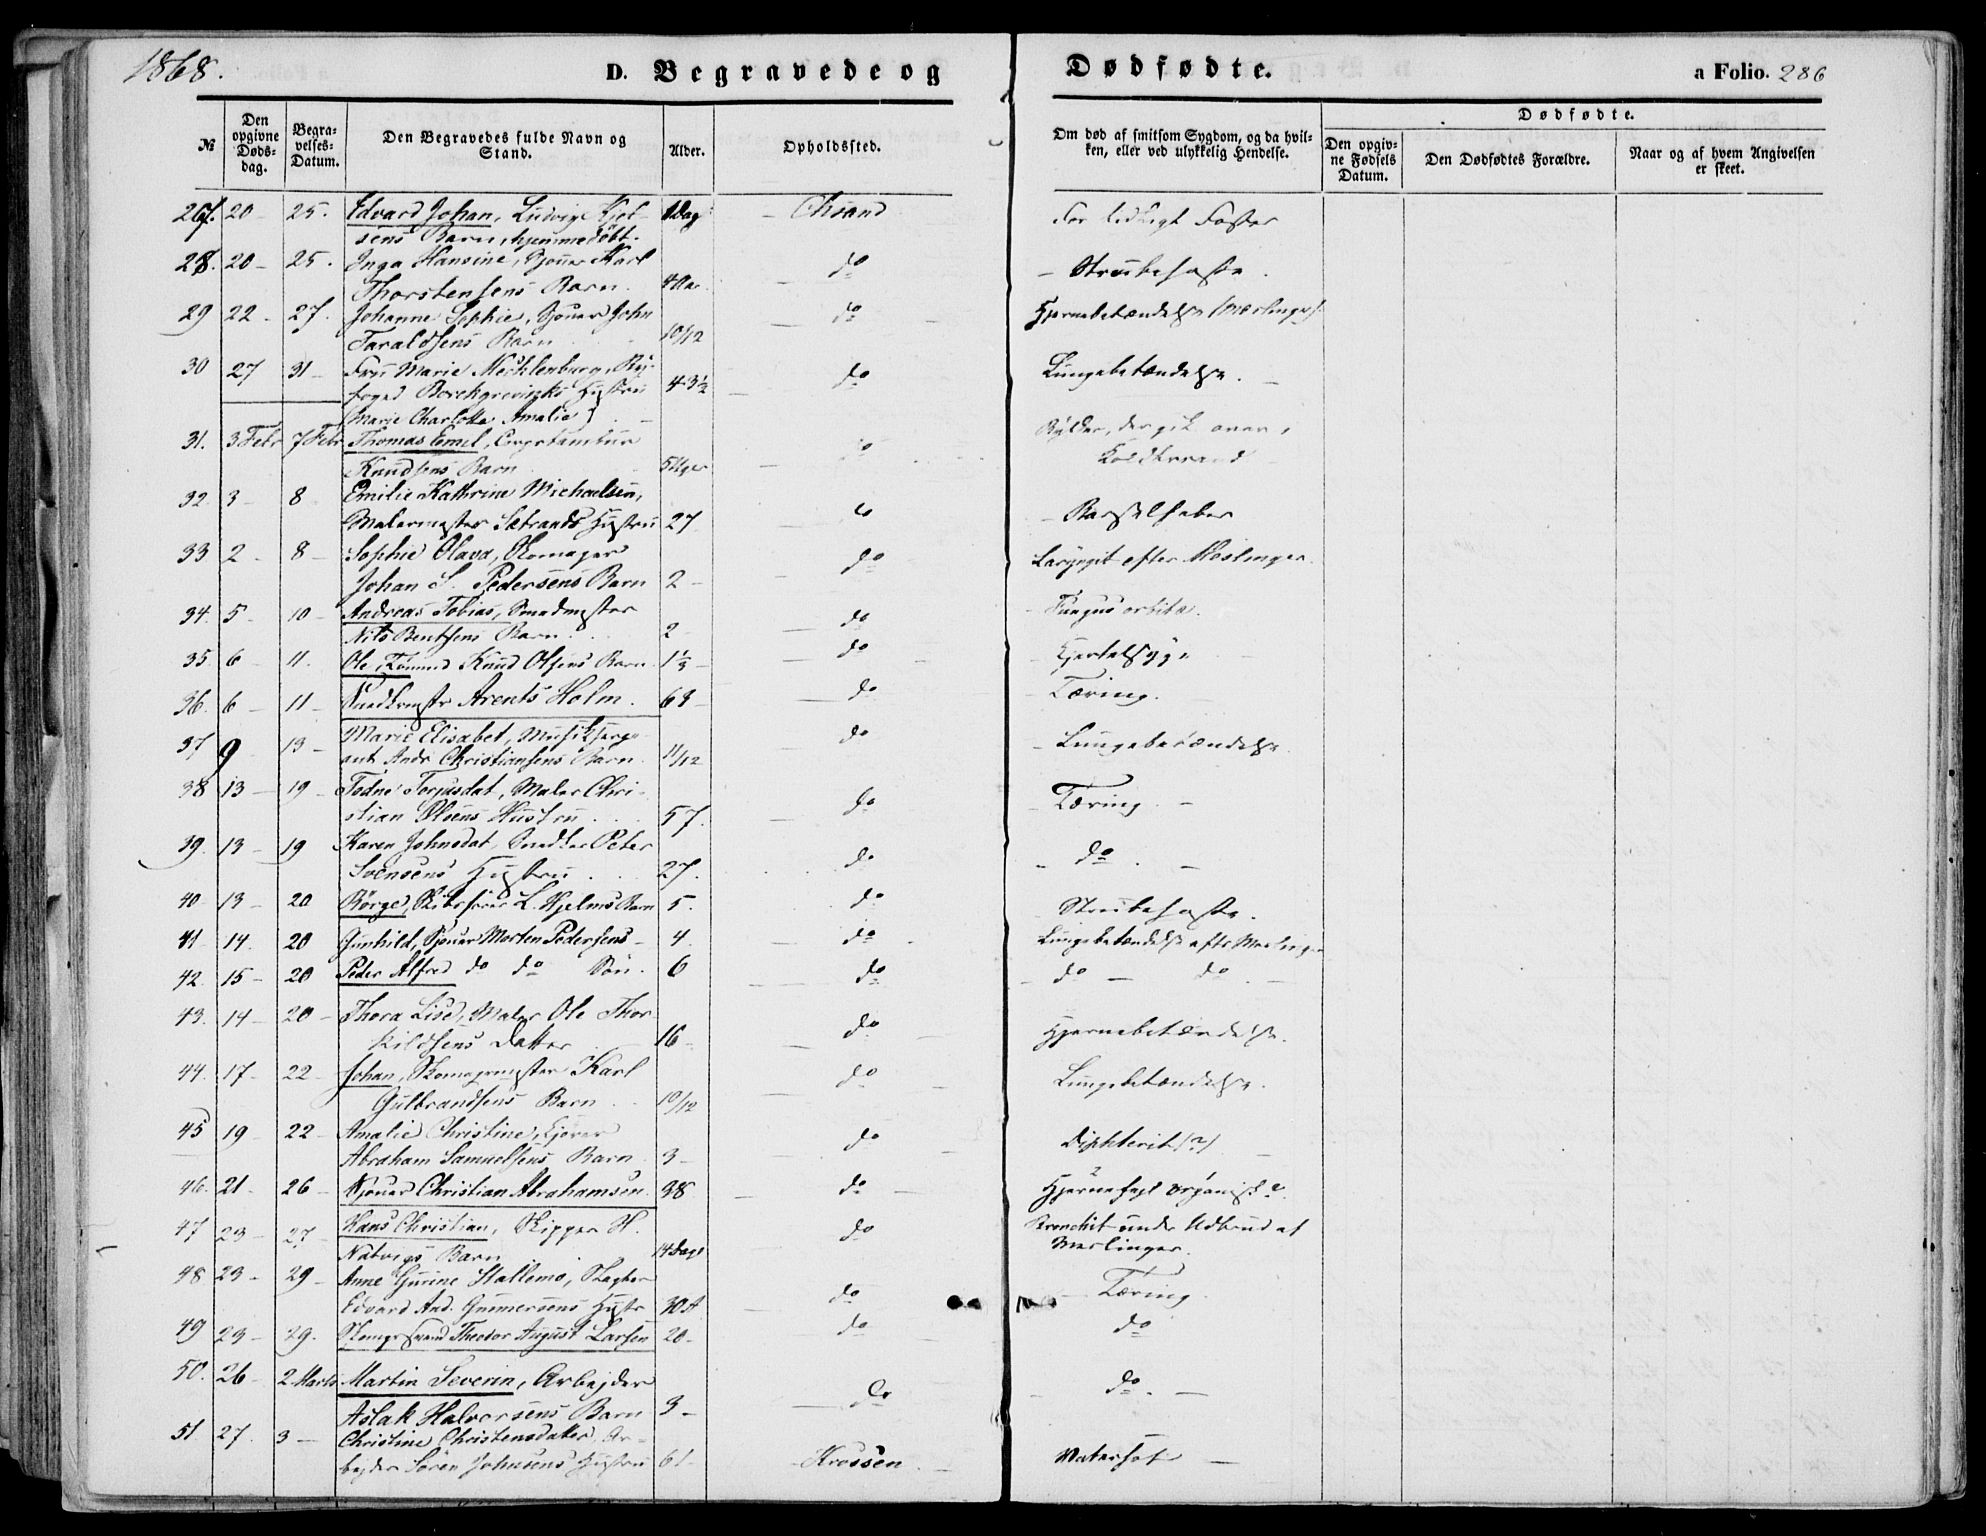 1868.
D. Begravede og Dødfødte.
a Folio. 286
№
Den opgivne Døds-dag.
Begra-velses-Datum.
Den Begravedes fulde Navn og Stand.
Alder.
Opholdssted.
Om død af smitsom Sygdom, og da hvil-ken, eller ved ulykkelig Hendelse.
Dødfødte.
Den opgiv-ne Fødsels Datum.
Den Dødfødtes Forældre.
Naar og af hvem Angivelsen er skeet.
27. 20 - 25. Edvard Johan, Ludvig Kjel- 1 Dag - Chsand For tidligt Foster
sens Barn, hjemmedöbt.
28. 20 - 25. Inga Hansine, Sjouer Karl do - Strubehoste.
Thorstensens Barn. 4 Aar
29 22 - 27. Johanne Sophie, Sjouer John do Hjernebetændelse (Meslinger)
Taraldsens Barn 10/12
30 27 31 - Fru Marie Mecklenburg, By- do Lungebetændelse. -
foged Borchgrevincks Hustru 43½
(Marie Charlotte Amalie)
31. 3 Febr 7 Febr Thomas Emil, Corpstambur do Bylder, der gik over i
Knudsens Barn 5 Uger Koldbrand
32 3 - 8 Emilie Kathrine Michaelsen, - Barselfeber
Malermester Sætrands Hustru 27 do
33 2 - 8 - Sophie Olava, Skomager do Laryngit efter Meslinger.
Johan S. Pedersens Barn 2 -
34. 5 - 10 - Andreas Tobias, Smedmester do Fungus orbitæ.
Nils Bentsens Barn 2
35 6 - 11. Ole, Tömmd Knud Olsens Barn 1⅓ - do Kjertelsyge
36. 6 - 11 - Snedkmstr Arents Holm. 68 - do - Tæring.
37 9 - 13 - Marie Elisabet, Musikserge- do - Lungebetændelse.
ant Andr Christiansens Barn 11/12
38 13 - 19 - Todne Terjusdat, Maler Chri- do - Tæring. -
stian Olsens Hustru 57.
39. 13 - 19 Karen Johnsdat, Snedker Peter do - do. -
Svensens Hustru 27.
40 13 - 20 Börge, Skibsförer L. Hjelms Barn 5. do Strubehoste.
41 14. 20 Gunhild, Sjouer Morten Pedersens - 4. - do Lungebetændelse eftr Meslinger
42. 15 - 20 Peder Alfred do do Sön. 6 do - do - do. -
43. 14 - 20 - Thora Lise, Maler Ole Thor- do Hjernebetændelse.
kildsens Datter 16 -
44. 17 - 22 - Johan, Skomagermester Karl do Lungebetændelse.
Gulbrandsens Barn 10/12
45 19 - 22 - Amalie Christine, Kjörer do Diphterit (?)
Abraham Samuelsens Barn 3 -
46. 21 - 26 - Sjouer Christian Abrahamsen. 38 - do - Hjernefeil organisk?
47 23 - 27 - Hans Christian, Skipper H. do Bronchit under Udbrud af
Natvigs Barn 14 Dage Meslinger.
48 23 - 29 - Anne Gurine Stallemo, Slagter - Tæring.
Edvard And. Gunnersens Hustr 30 A do
49 23 - 29. Skomgrsvend Theodor August Larsen 20 - do do
50. 26 - 2 Marts Martin Severin, Arbejder do - do. -
Aslak Halvorsens Barn 3 -
51 27. 3 - Christine Christensdatter, Ar-
bejder Sören Johnsens Hustru 61 - Krossen Vatersot -